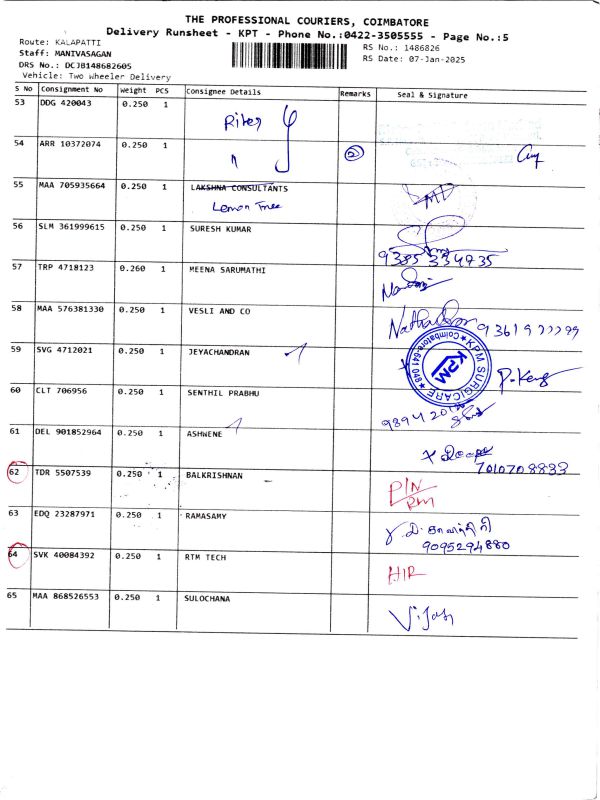 THE PROFESSIONAL COURIERS, COIMBATORE
Delivery Runsheet - KPT - Phone No.:0422-3505555 - Page No.:5
Route: KALAPATTI
Staff: MANIVASAGAN
DRS No.: DCJB148682605
Vehicle: Two Wheeler Delivery
RS No.: 1486826
RS Date: 07-Jan-2025
S No Consignment No Weight PCS Consignee Details Remarks Seal & Signature
53 DDG 420043 0.250 1
54 ARR 10372074 0.250 1 2
55 MAA 705935664 0.250 1 LAKSHNA CONSULTANTS
Lemon Tree
56 SLM 361999615 0.250 1 SURESH KUMAR
9385 334735
57 TRP 4718123 0.260 1 MEENA SARUMATHI
58 MAA 576381330 0.250 1 VESLI AND CO
59 SVG 4712021 0.250 1 JEYACHANDRAN
KPM SURGICARE
Coimbatore-641 048
60 CLT 706956 0.250 1 SENTHIL PRABHU
61 DEL 901852964 0.250 1 ASHWENE
7010708833
62 TDR 5507539 0.250 1 BALKRISHNAN PIN
RM
63 EDQ 23287971 0.250 1 RAMASAMY
9095294880
64 SVK 40084392 0.250 1 RTM TECH HIR
65 MAA 868526553 0.250 1 SULOCHANA Vijay